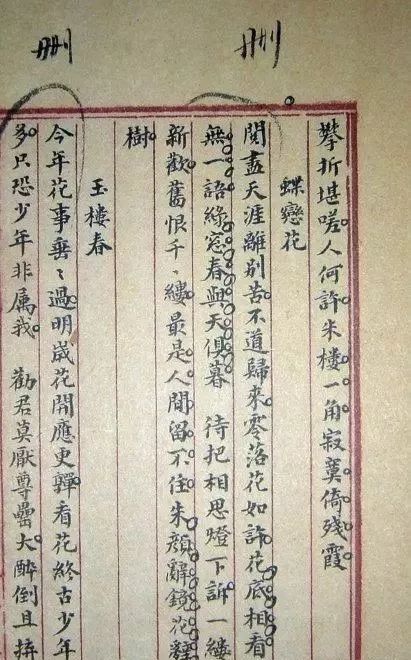 删
删
攀折堪嗟人何許朱樓一角寂寞倚殘霞
蝶戀花
閱盡天涯離別苦不道歸來零落花如許花底相看
無一語綠窓春與天俱暮 待把相思燈下訴一縷
新歡舊恨千〻縷最是人間留不住朱顏辭鏡花辭
樹
玉樓春
今年花事垂〻過明歲花開應更嚲看花終古少年
多只恐少年非屬我 勸君莫厭尊罍大醉倒且拚